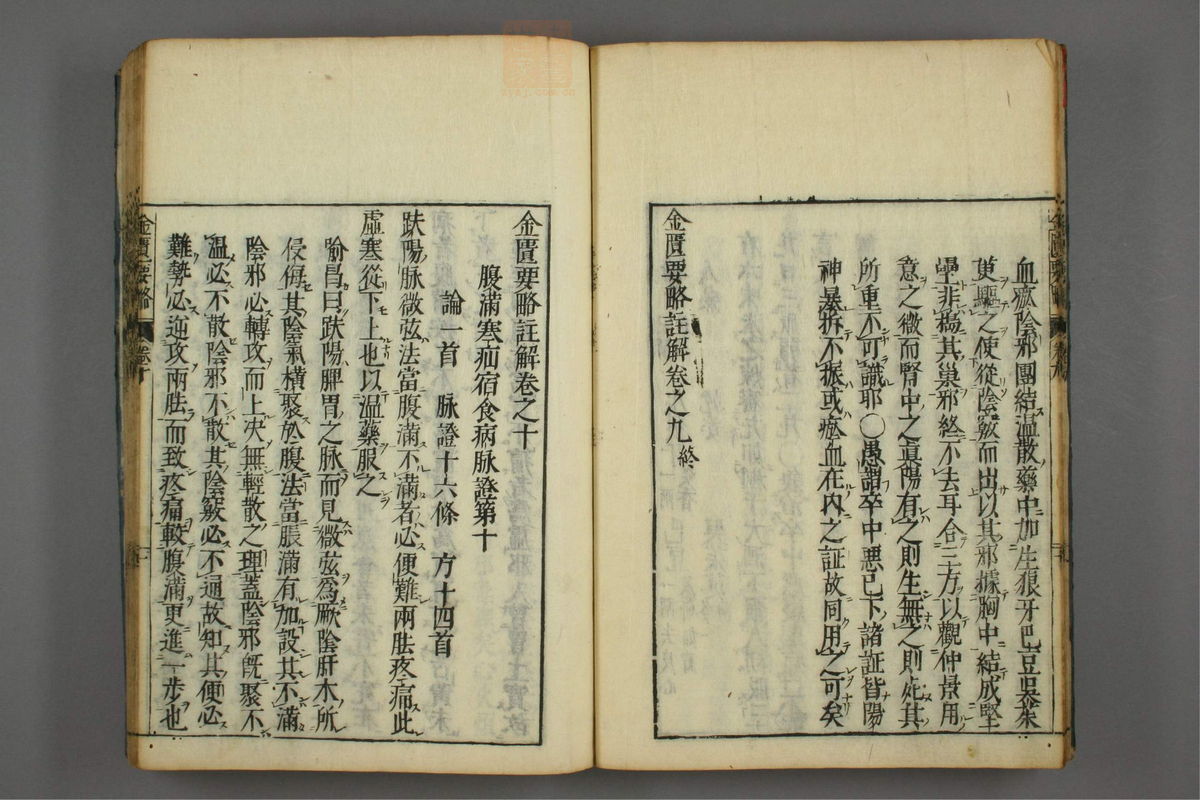 血瘀陰邪團結温散藥中加生狼牙巴豆吳茱
更驅之使從陰竅而出以其邪據胸中結成堅
壘非搗其巢邪終不去耳合三方以觀仲景用
意之微而腎中之眞陽有之則生無之則死其
所重不可識耶○愚謂卒中惡已下諸証皆陽
神暴拆不振或瘀血在内之証故同用之可矣
金匱要略註解卷之九終
金匱要略註解卷之十
腹滿寒疝宿食病脉證第十
論一首 脉證十六條 方十四首
趺陽脉微弦法當腹滿不滿者必便難兩胠疼痛此
虛寒從下上也以温藥服之
喻昌曰趺陽脾胃之脉而見微弦爲厥陰肝木所
侵侮其陰氣橫聚於腹法當脹滿有加設其不滿
陰邪必轉攻而上决無輕散之理蓋陰邪旣聚不
温必不散陰邪不散其陰竅必不通故知其便必
難勢必逆攻兩胠而致疼痛較腹滿更進一步也
金匱要略 卷十